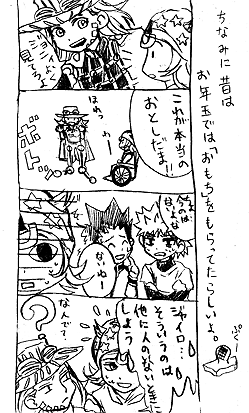 ちなみに昔は
お年玉では「おもち」をもらってたらしいよ。
ぷく
ジョニィ!
見てろ!
これが本当の
おとしだま!!
ほわっ
わー
ボトッ
なぁ
なぁ
ジャイロ…
そういうのは
他に人のない後に
しよう
なんで?